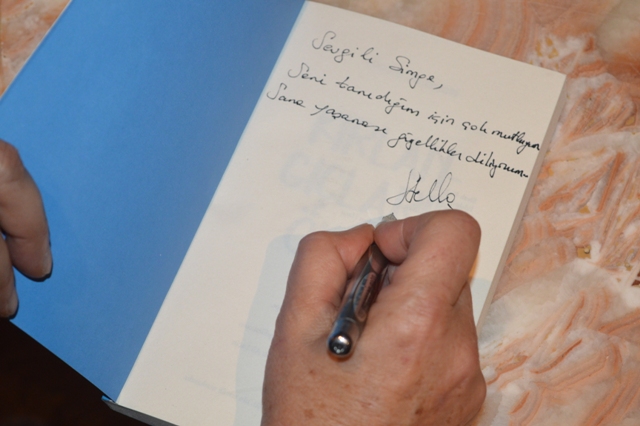 Sevgili Simge,
Seni tanıdığım için çok mutluyum
Sana yaşanası güzellikler diliyorum.
Stella